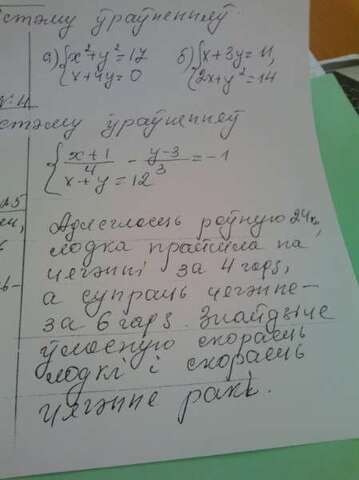 стэму ўраўненняў
а) {x²+y²=17   б) {x+3y=11,
{x+4y=0   {2x+y²=14
№4
стэму ўраўненняў
{(x+1)/4 - (y-3)/3 = -1
x+y=12
Адлегласць роўную 24км,
лодка прайшла па
цячэнні за 4 гадз,
а супраць цячэння-
за 6 гадз. Знайдзіце
ўласную скорасць
лодкі і скорасць
цячэння ракі.